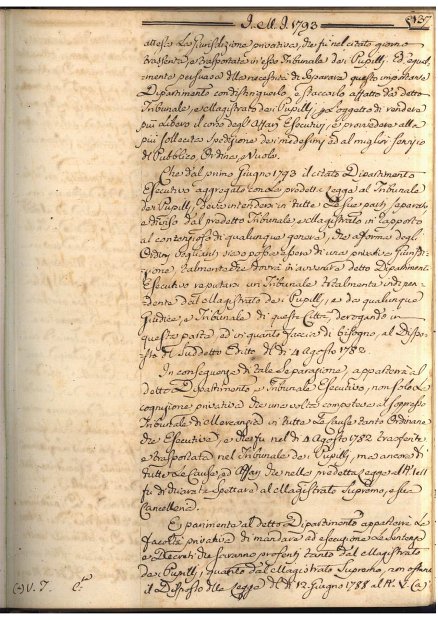 I. M. I. 1793 137
attesta la Giurisdizione privativa, che fù nel citato giorno
trasferita, e trasportata in esso Tribunale de i Pupilli. Ed equal-
mente persuasa della necessità di separare questo importante
Dipartimento con distinguerlo, e staccarlo affatto da detto
Tribunale, e Magistrato de i Pupilli; per l'oggetto di rendere
più libero il corso degli Affari Esecutivi, e provvedere alla
più sollecita spedizione de i medesimi ed al miglior servizio
del Pubblico, Ordina, e Vuole.
Che dal primo Giugno 1793 il citato Dipartimento
Esecutivo aggregato con la predetta Legge al Tribunale
de i Pupilli, debba intendersi in tutte le sue parti separato
e diviso dal predetto Tribunale, e Magistrato in rapporto
al contenzioso di qualunque genere, che a forma degli
Ordini veglianti vi possa essere di una privativa Giurisdi-
zione, talmente che dovrà in avvenire detto Dipartimento
Esecutivo reputarsi un Tribunale totalmente indipen-
dente dal Magistrato de i Pupilli, e da qualunque
Giudice, e Tribunale di questa Città, derogando in
questa parte, ed in quanto faccia di bisogno, al Dispo-
sto del suddetto Editto de' dì 4 Agosto 1782.
In conseguenza di tale separazione, apparterrà al
detto Dipartimento, e Tribunale Esecutivo, non solo la
cognizione privativa che una volta competeva al soppresso
Tribunale di Mercanzia in tutte le Cause tanto Ordinarie
che Esecutive, e che fu nel dì 4 Agosto 1782 trasferita
e trasportata nel Tribunale de i Pupilli, ma ancora di
tutte le Cause, ed Affari che nella predetta Legge all'Art.
fu dichiarato spettare al Magistrato Supremo, e sua
Cancelleria.
E parimente al detto Dipartimento apparterrà la
facoltà privativa di mandare ad esecuzione le Sentenze
e Decreti che saranno proferiti tanto dal Magistrato
de i Pupilli, quanto dal Magistrato Supremo, non ostante
il Disposto della Legge de' dì 12 Giugno 1788 al §. V. (a)
(a) V. J.